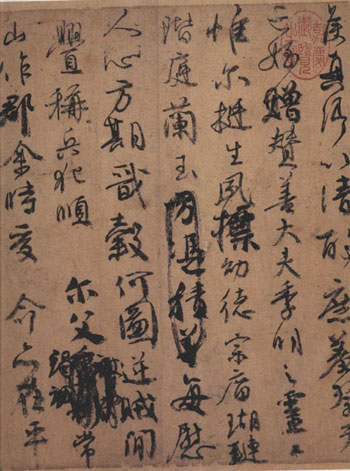 侯真卿以清酌庶羞祭于
亡姪贈贊善大夫季明之靈曰
惟爾挺生夙標幼德宗廟瑚璉
階庭蘭玉方憑積善每慰
人心方期戩穀何圖逆賊閒
釁稱兵犯順爾父竭誠常
山作郡余時受命亦在平